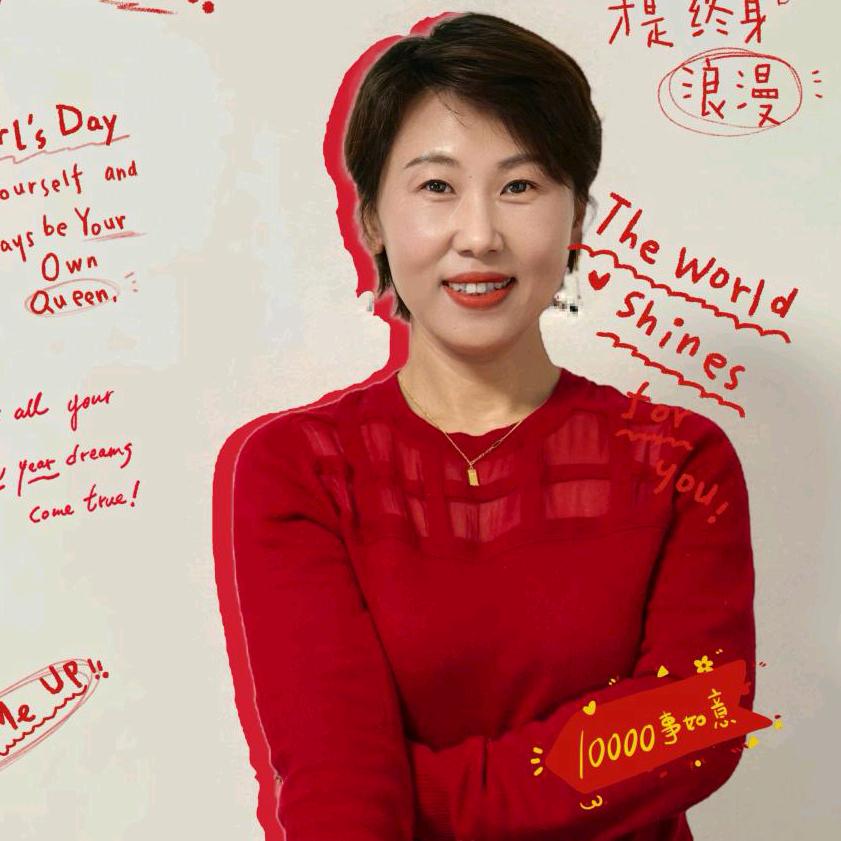 才是终身
浪漫
rl's Day
ourself and
ays be Your
Own
Queen.
all your
year dreams
come true!
Me UP!!
The World
shines
for
you!
10000事如意